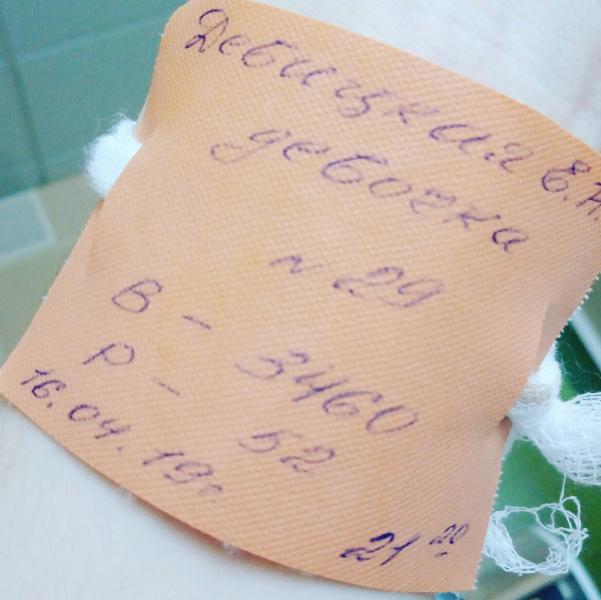 Девицкая Е.Н.
девочка
N 29
В - 3460
Р - 52
16.04.19г
21 20